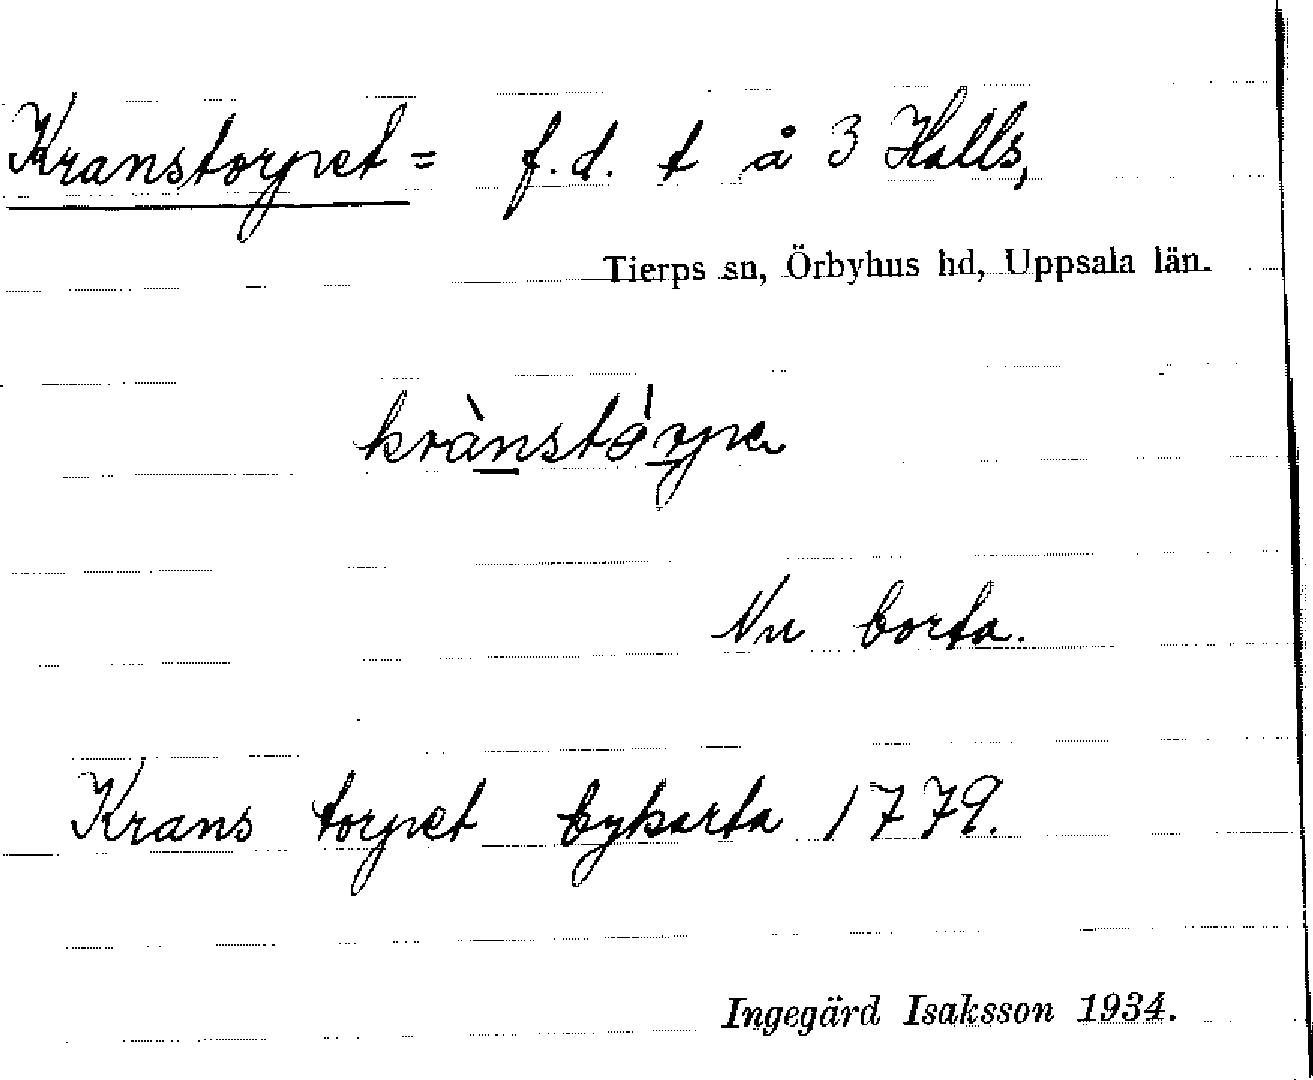 Kranstorpet = f.d. t å 3 Halls,
Tierps sn, Örbyhus hd, Uppsala län.
Nu borta.
Krans torpet bykarta 1779.
Ingegärd Isaksson 1934.